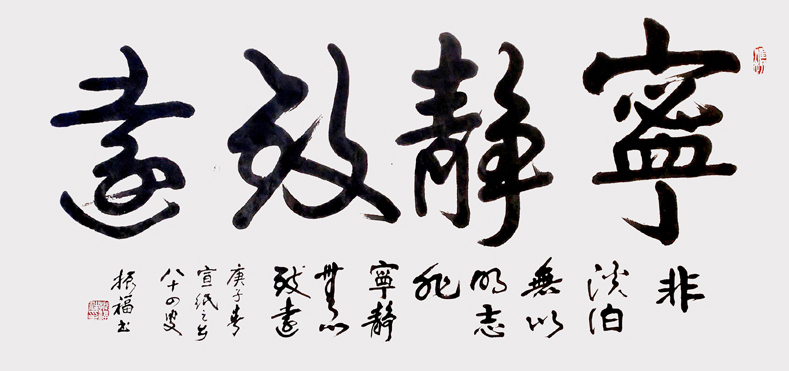 寧静致遠
非
淡泊
無以
明志
非
寧静
無以
致遠
庚子春
宣紙之乡
八十四叟
振福书